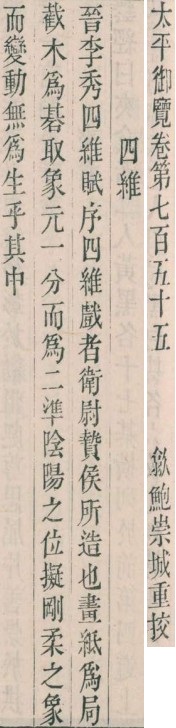 太平御覽卷第七百五十五　歙鮑崇城重挍
四維
晉李秀四維賦序四維戲者衛尉贄侯所造也畫紙爲局
截木爲棊取象元一分而爲二準陰陽之位擬剛柔之象
而變動無爲生乎其中